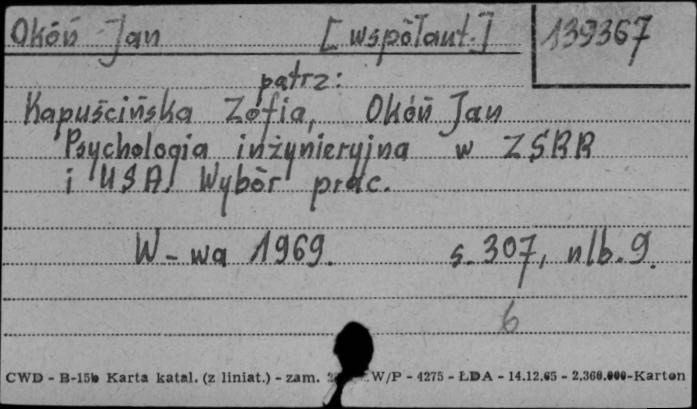 Okóń Jan [współaut.] 139367
patrz:
Kapuścińska Zofia, Okóń Jan
Psychologia inżynieryjna w ZSRR
i USA. Wybór prac.
W-wa 1969. s. 307, nlb. 9.
6
CWD - B-15b Karta katal. (z liniat.) - zam. W/P - 4275 - ŁDA - 14.12.65 - 2.360.000-Karton